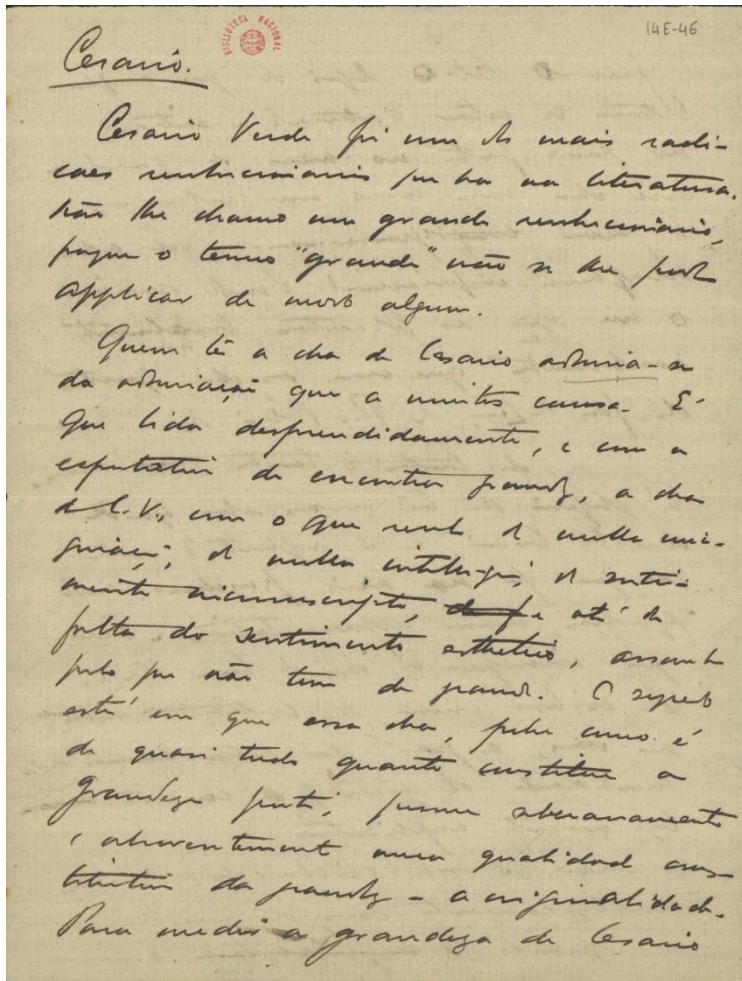 14E-46
BIBLIOTECA NACIONAL
Cesario.
Cesario Verde foi um dos mais radi-
caes revolucionarios que ha na literatura.
Não lhe chamo um grande revolucionario,
porque o termo "grande" não se lhe pode
applicar de modo algum.
Quem lê a obra de Cesario admira-se
da admiração que a muitos causa. É
que lida desprendidamente, e com a
expectativa de encontrar grandeza, a obra
de C. V., com o que revela de nulla ima-
ginação, de nulla intelligencia, de senti-
mento e até de
falta do sentimento esthetico, assombra
pelo que não tem de grande. O segredo
está em que essa obra, pobre como é
de quasi tudo quanto constitue a
grandeza poetica, possue soberanamente
e absorventemente uma qualidade cons-
titutiva da grandeza - a originalidade.
Para medir a grandeza de Cesario